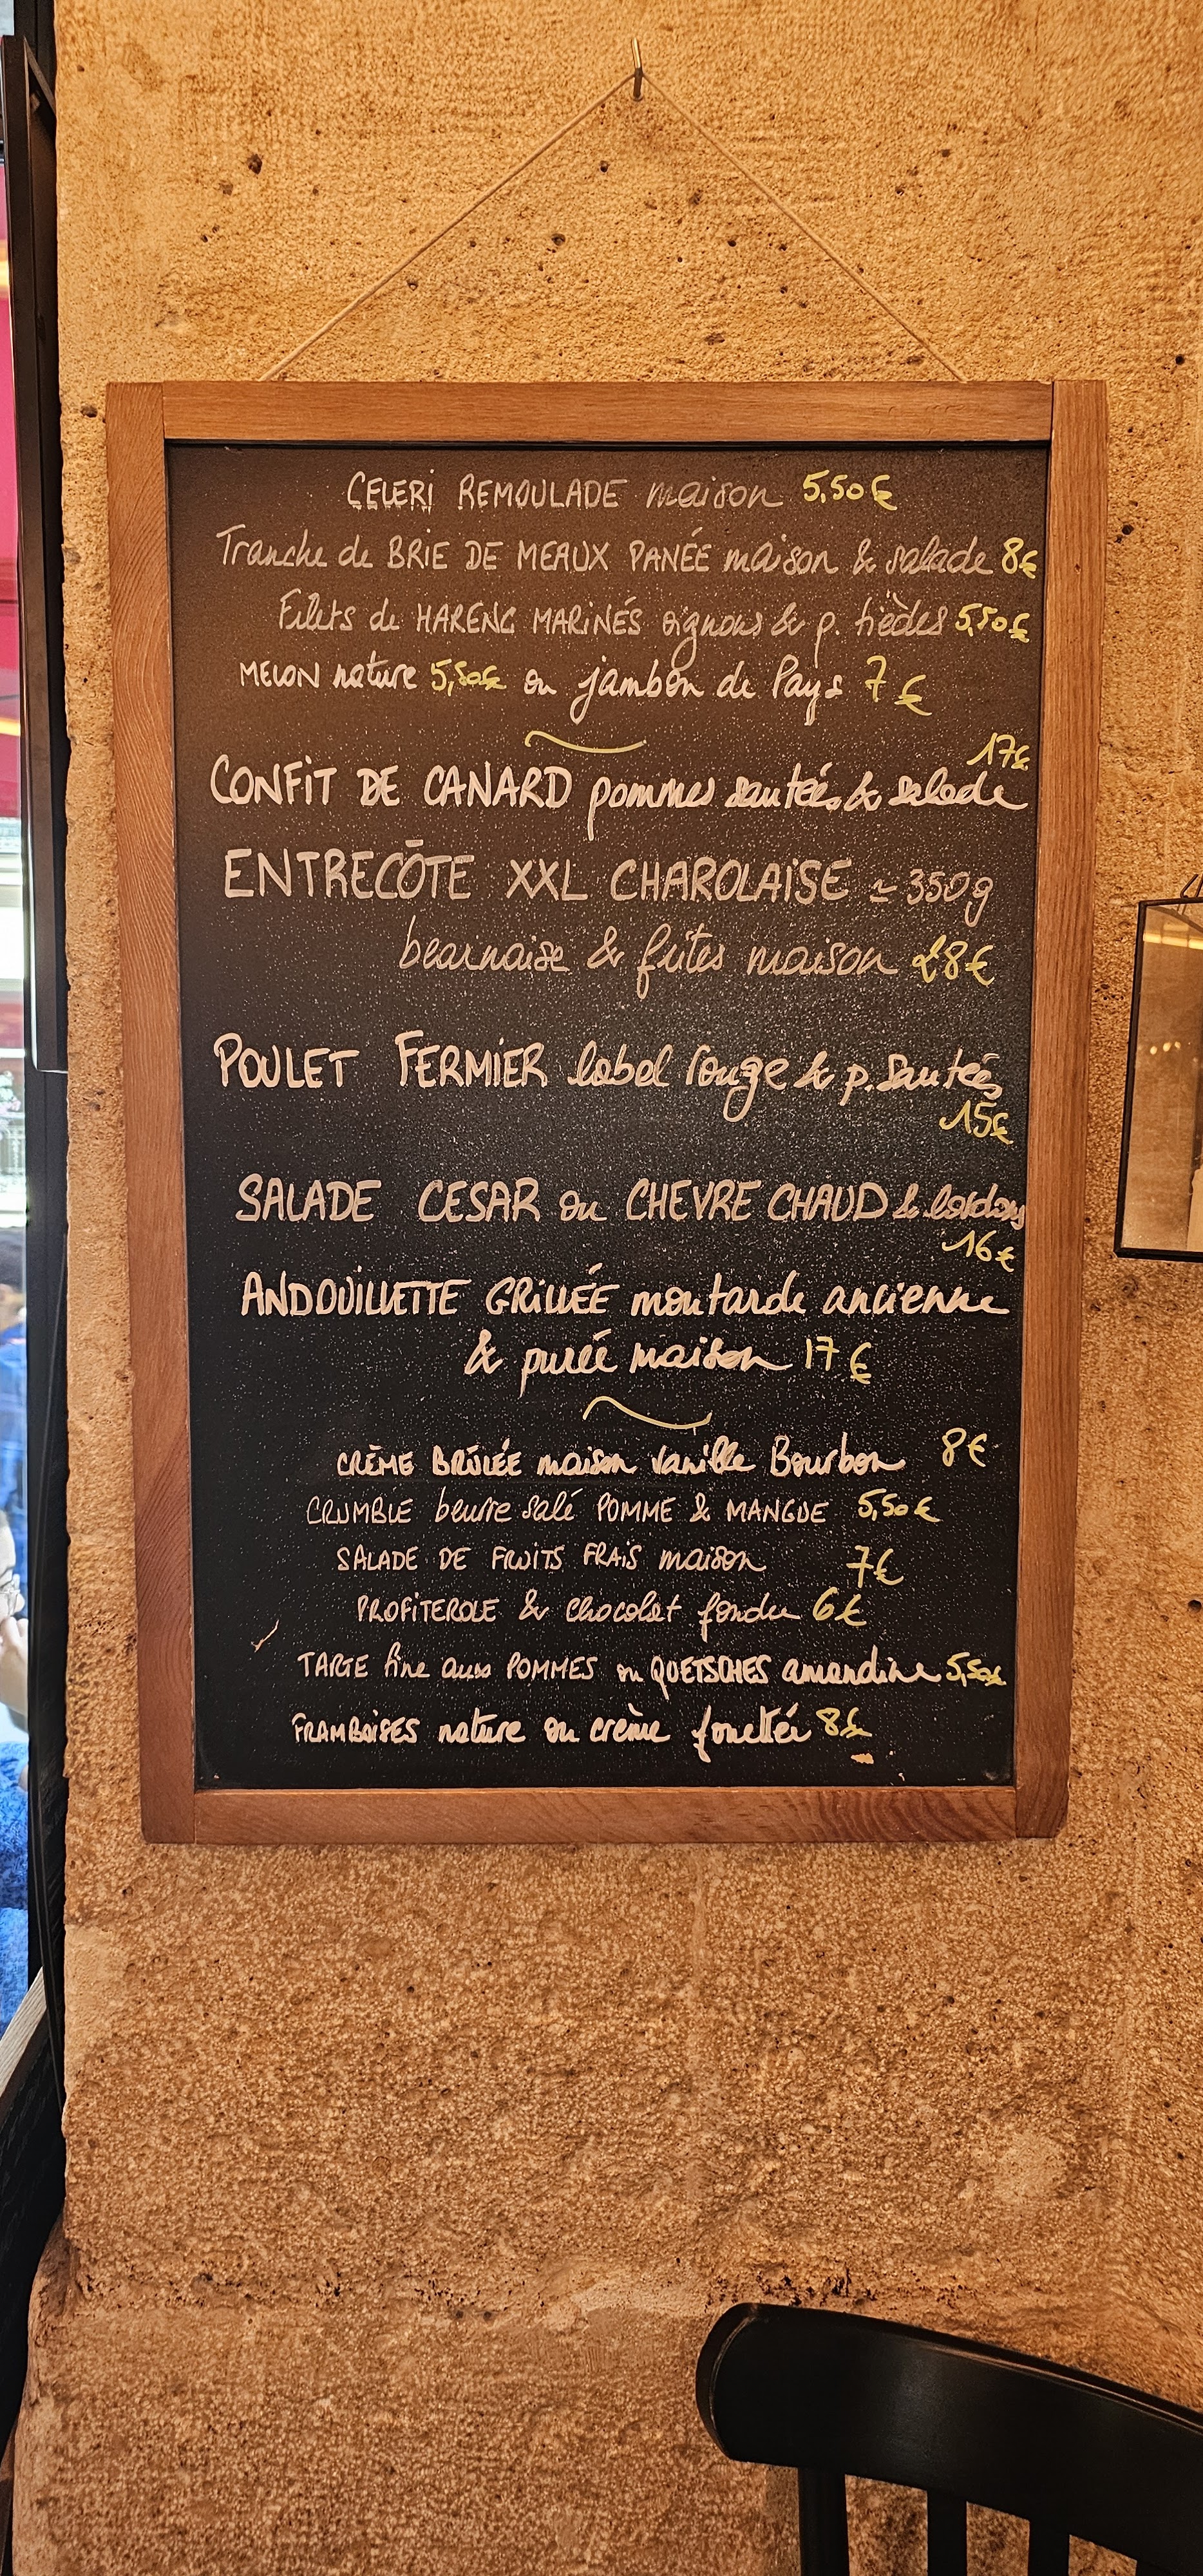 CELERI REMOULADE maison 5,50€
Tranche de BRIE DE MEAUX PANÉE maison & salade 8€
Filets de HARENG MARINÉS oignons & p. tièdes 5,50€
MELON nature 5,50€ ou jambon de Pays 7€
17€
CONFIT DE CANARD pommes sautées & salade
ENTRECÔTE XXL CHAROLAISE ≃ 350g
bearnaise & frites maison 28€
POULET FERMIER label rouge & p. sautées
15€
SALADE CESAR ou CHEVRE CHAUD & lardons
16€
ANDOUILLETTE GRILLÉE moutarde ancienne
& purée maison 17€
CRÈME BRÛLÉE maison vanille Bourbon 8€
CRUMBLE beurre salé POMME & MANGUE 5,50€
SALADE DE FRUITS FRAIS maison 7€
PROFITEROLE & chocolat fondu 6€
TARTE fine aux POMMES ou QUETSCHES amandine 5,50€
FRAMBOISES nature ou crème fouettée 8€